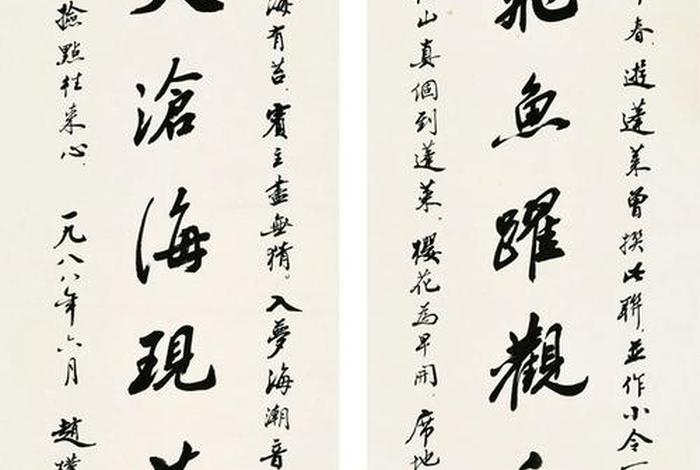 春。遊蓬萊曾撰此聯。並作小令一
飛魚躍觀
山真個到蓬萊。櫻花為早開。席地
海有苔。賓主盡無猜。入夢海潮音
滄海現
撿點往來心。一九八八年六月 趙樸